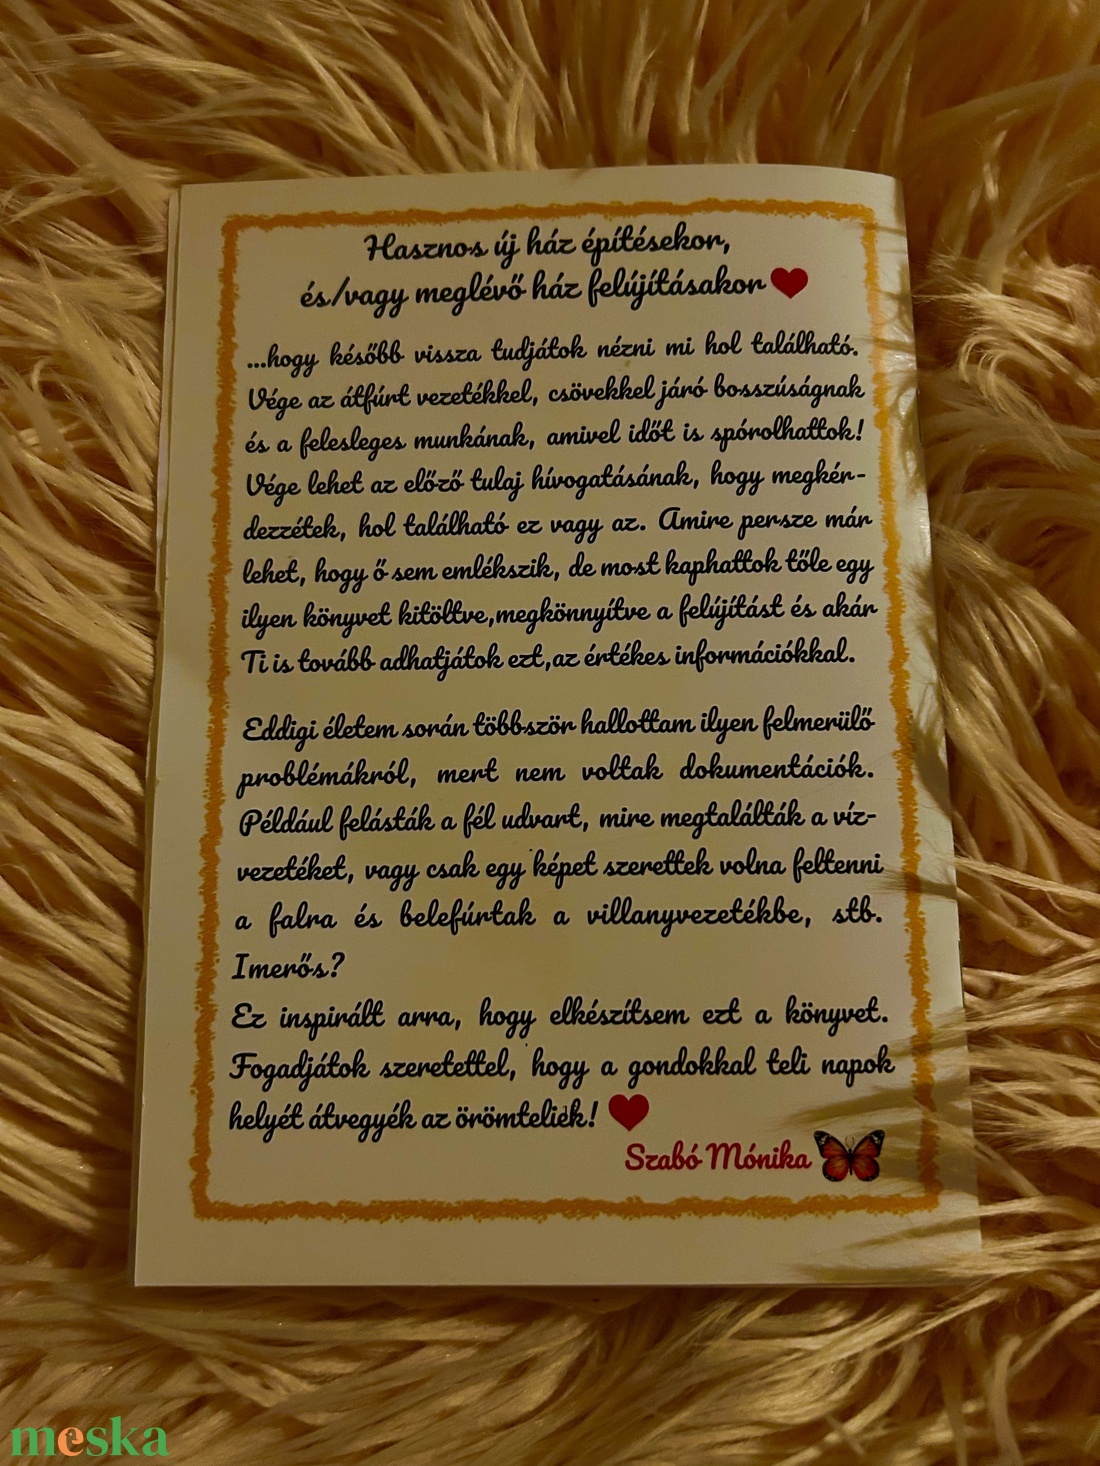 Hasznos új ház építésekor,
és/vagy meglévő ház felújításakor
...hogy később vissza tudjátok nézni mi hol található.
Vége az átfúrt vezetékkel, csövekkel járó bosszúságnak
és a felesleges munkának, amivel időt is spórolhattok!
Vége lehet az előző tulaj hívogatásának, hogy megkér-
dezzétek, hol található ez vagy az. Amire persze már
lehet, hogy ő sem emlékszik, de most kaphattok tőle egy
ilyen könyvet kitöltve,megkönnyítve a felújítást és akár
Ti is tovább adhatjátok ezt,az értékes információkkal.
Eddigi életem során többször hallottam ilyen felmerülő
problémákról, mert nem voltak dokumentációk.
Például felásták a fél udvart, mire megtalálták a víz-
vezetéket, vagy csak egy képet szerettek volna feltenni
a falra és belefúrtak a villanyvezetékbe, stb.
Imerős?
Ez inspirált arra, hogy elkészítsem ezt a könyvet.
Fogadjátok szeretettel, hogy a gondokkal teli napok
helyét átvegyék az örömteliek!
Szabó Mónika
meska